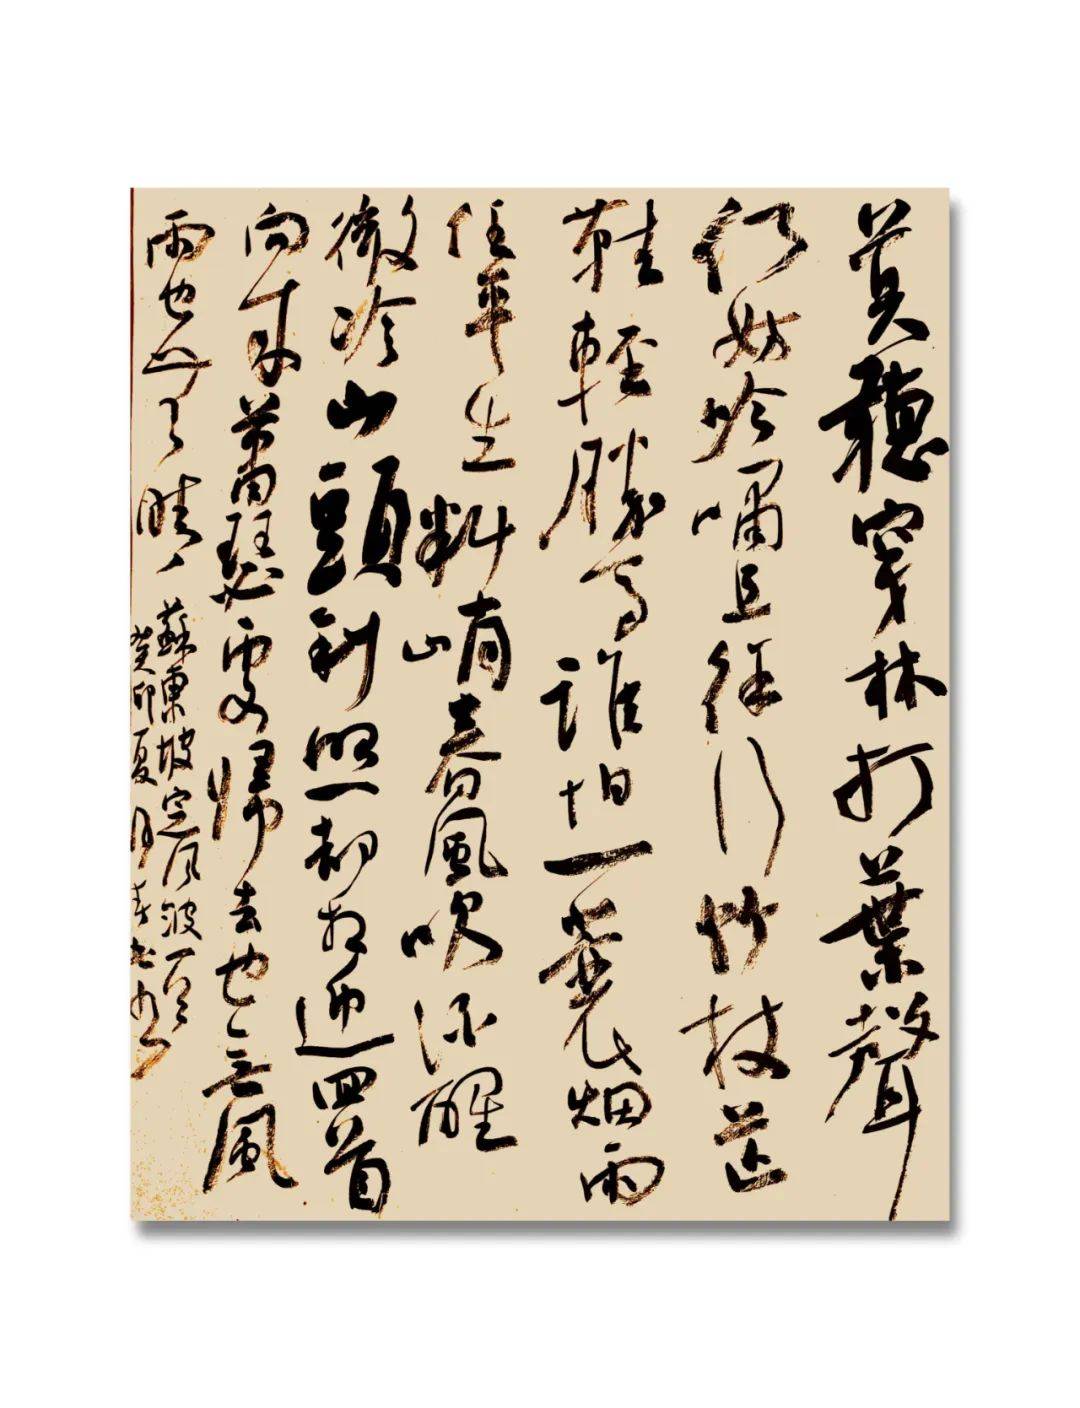 莫聽穿林打葉聲
何妨吟嘯且徐行竹杖芒
鞋輕勝馬誰怕一蓑烟雨
任平生料峭春風吹酒醒
微冷山頭斜照却相迎回首
向來蕭瑟處歸去也無風
雨也無晴
蘇東坡定風波一首
癸卯夏月